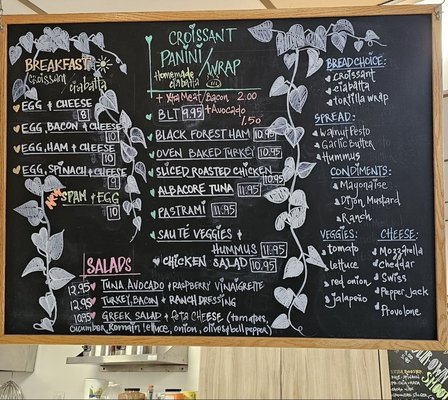 BREAKFAST
croissant
ciabatta
EGG + CHEESE 8
EGG, BACON + CHEESE 10
EGG, HAM + CHEESE 10
EGG, SPINACH + CHEESE 9
SPAM + EGG 10
CROISSANT
PANINI /
HOMEMADE
ciabatta
WRAP
+ XtraMeat/Bacon, 2.00
+ Avocado 1.50
BLT 9.95
BLACK FOREST HAM 10.95
OVEN BAKED TURKEY 10.95
SLICED ROASTED CHICKEN 10.95
ALBACORE TUNA 11.95
PASTRAMI 11.95
SAUTÉ VEGGIES +
HUMMUS 11.95
CHICKEN SALAD 10.95
SALADS
12.95 TUNA AVOCADO + RASPBERRY VINAIGRETTE
12.95 TURKEY, BACON + RANCH DRESSING
10.95 GREEK SALAD + feta CHEESE (tomatoes,
cucumber, Romain lettuce, onion, olives & bell pepper)
BREAD CHOICE:
croissant
ciabatta
tortilla wrap
SPREAD:
Walnut Pesto
Garlic Butter
Hummus
CONDIMENTS:
Mayonaise
Dijon Mustard
Ranch
VEGGIES:
tomato
lettuce
red onion
jalapeño
CHEESE:
Mozzarella
Cheddar
Swiss
Pepper jack
Provolone